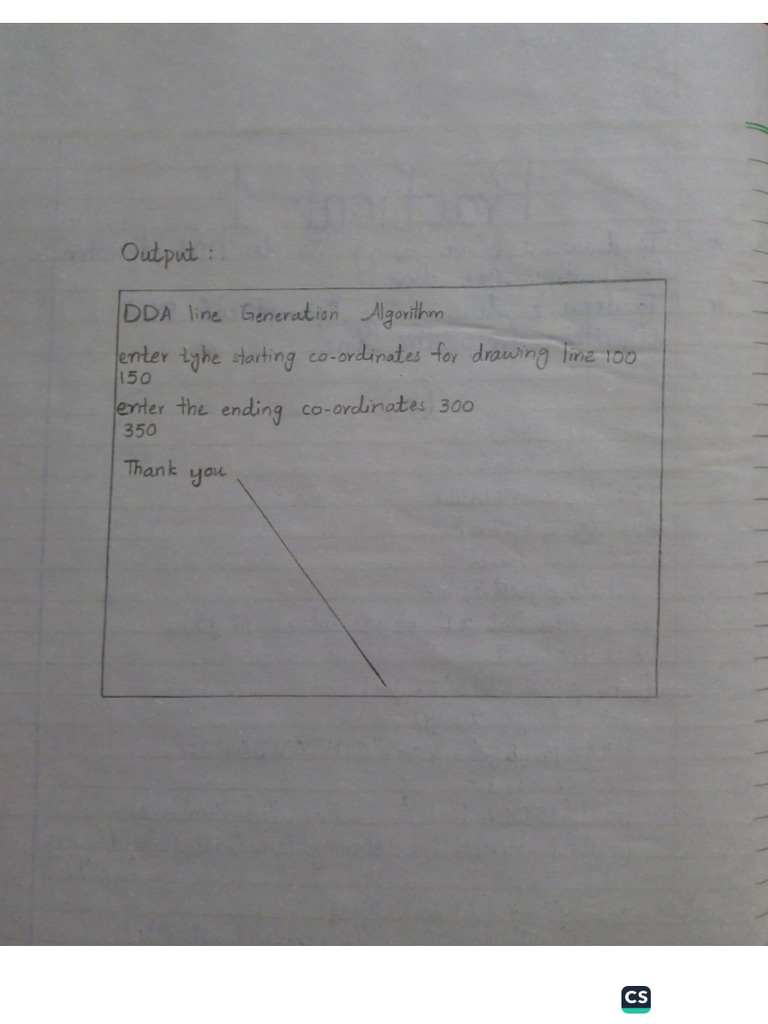 Output :
DDA line Generation Algorithm
enter tyhe starting co-ordinates for drawing line 100
150
enter the ending co-ordinates 300
350
Thank you
CS